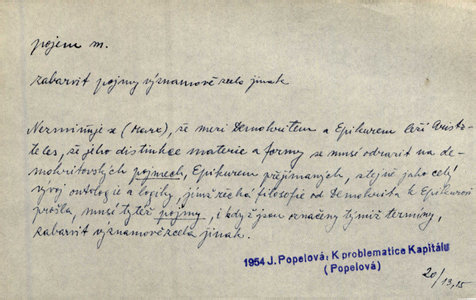 pojem m.
zabarvit pojmy významově zcela jinak
Nezmiňuje se (Marx), že mezi Demokritem a Epikurem leží Aristo-
teles, že jeho distinkce materie a formy se musí odrazit na de-
mokritovských pojmech, Epikurem přejímaných, stejně jako celý
vývoj ontologie a logiky, jímž řecká filosofie od Demokrita k Epikurovi
prošla, musí tytéž pojmy, i když jsou označeny týmiž termíny,
zabarvit významově zcela jinak.
1954 J. Popelová: K problematice Kapitálu
(Popelová)
20/13,15